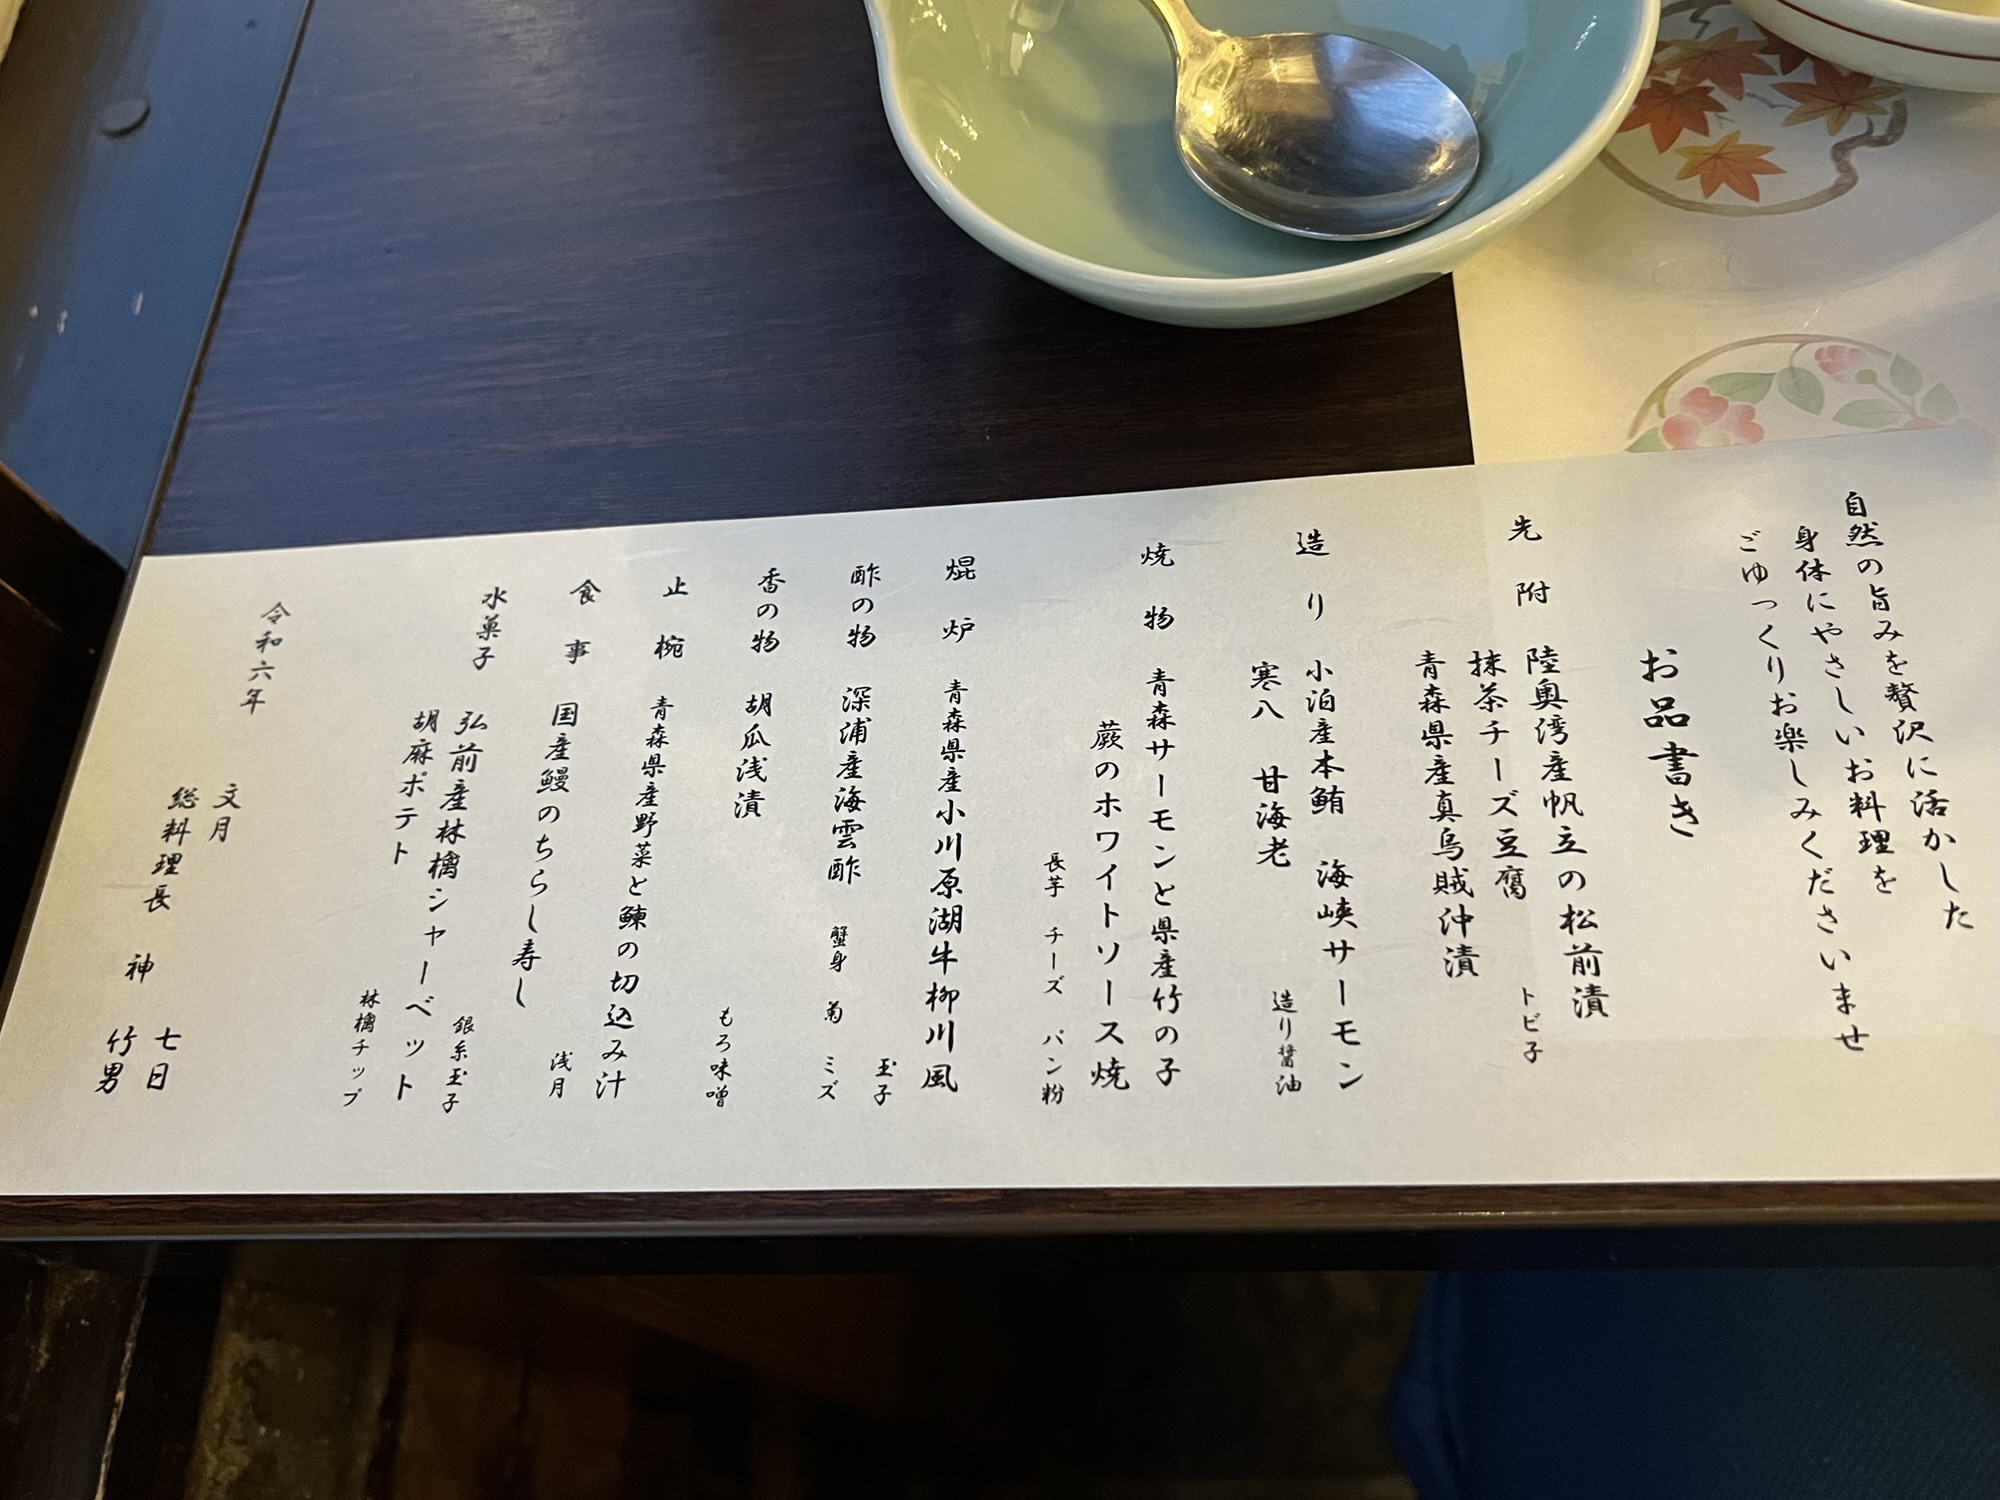 自然の旨みを贅沢に活かした
身体にやさしいお料理を
ごゆっくりお楽しみくださいませ
お品書き
先附 陸奥湾産帆立の松前漬 トビ子
抹茶チーズ豆腐
青森県産真烏賊沖漬
造り 小泊産本鮪 海峡サーモン
寒八 甘海老 造り醤油
焼物 青森サーモンと県産竹の子
蕨のホワイトソース焼
長芋 チーズ パン粉
焜炉 青森県産小川原湖牛柳川風
玉子
酢の物 深浦産海雲酢 蟹身 菊 ミズ
香の物 胡瓜浅漬 もろ味噌
止椀 青森県産野菜と鰊の切込み汁
浅月
食事 国産鰻のちらし寿し
銀糸玉子
水菓子 弘前産林檎シャーベット
胡麻ポテト 林檎チップ
令和六年 文月 七日
総料理長 神 竹男